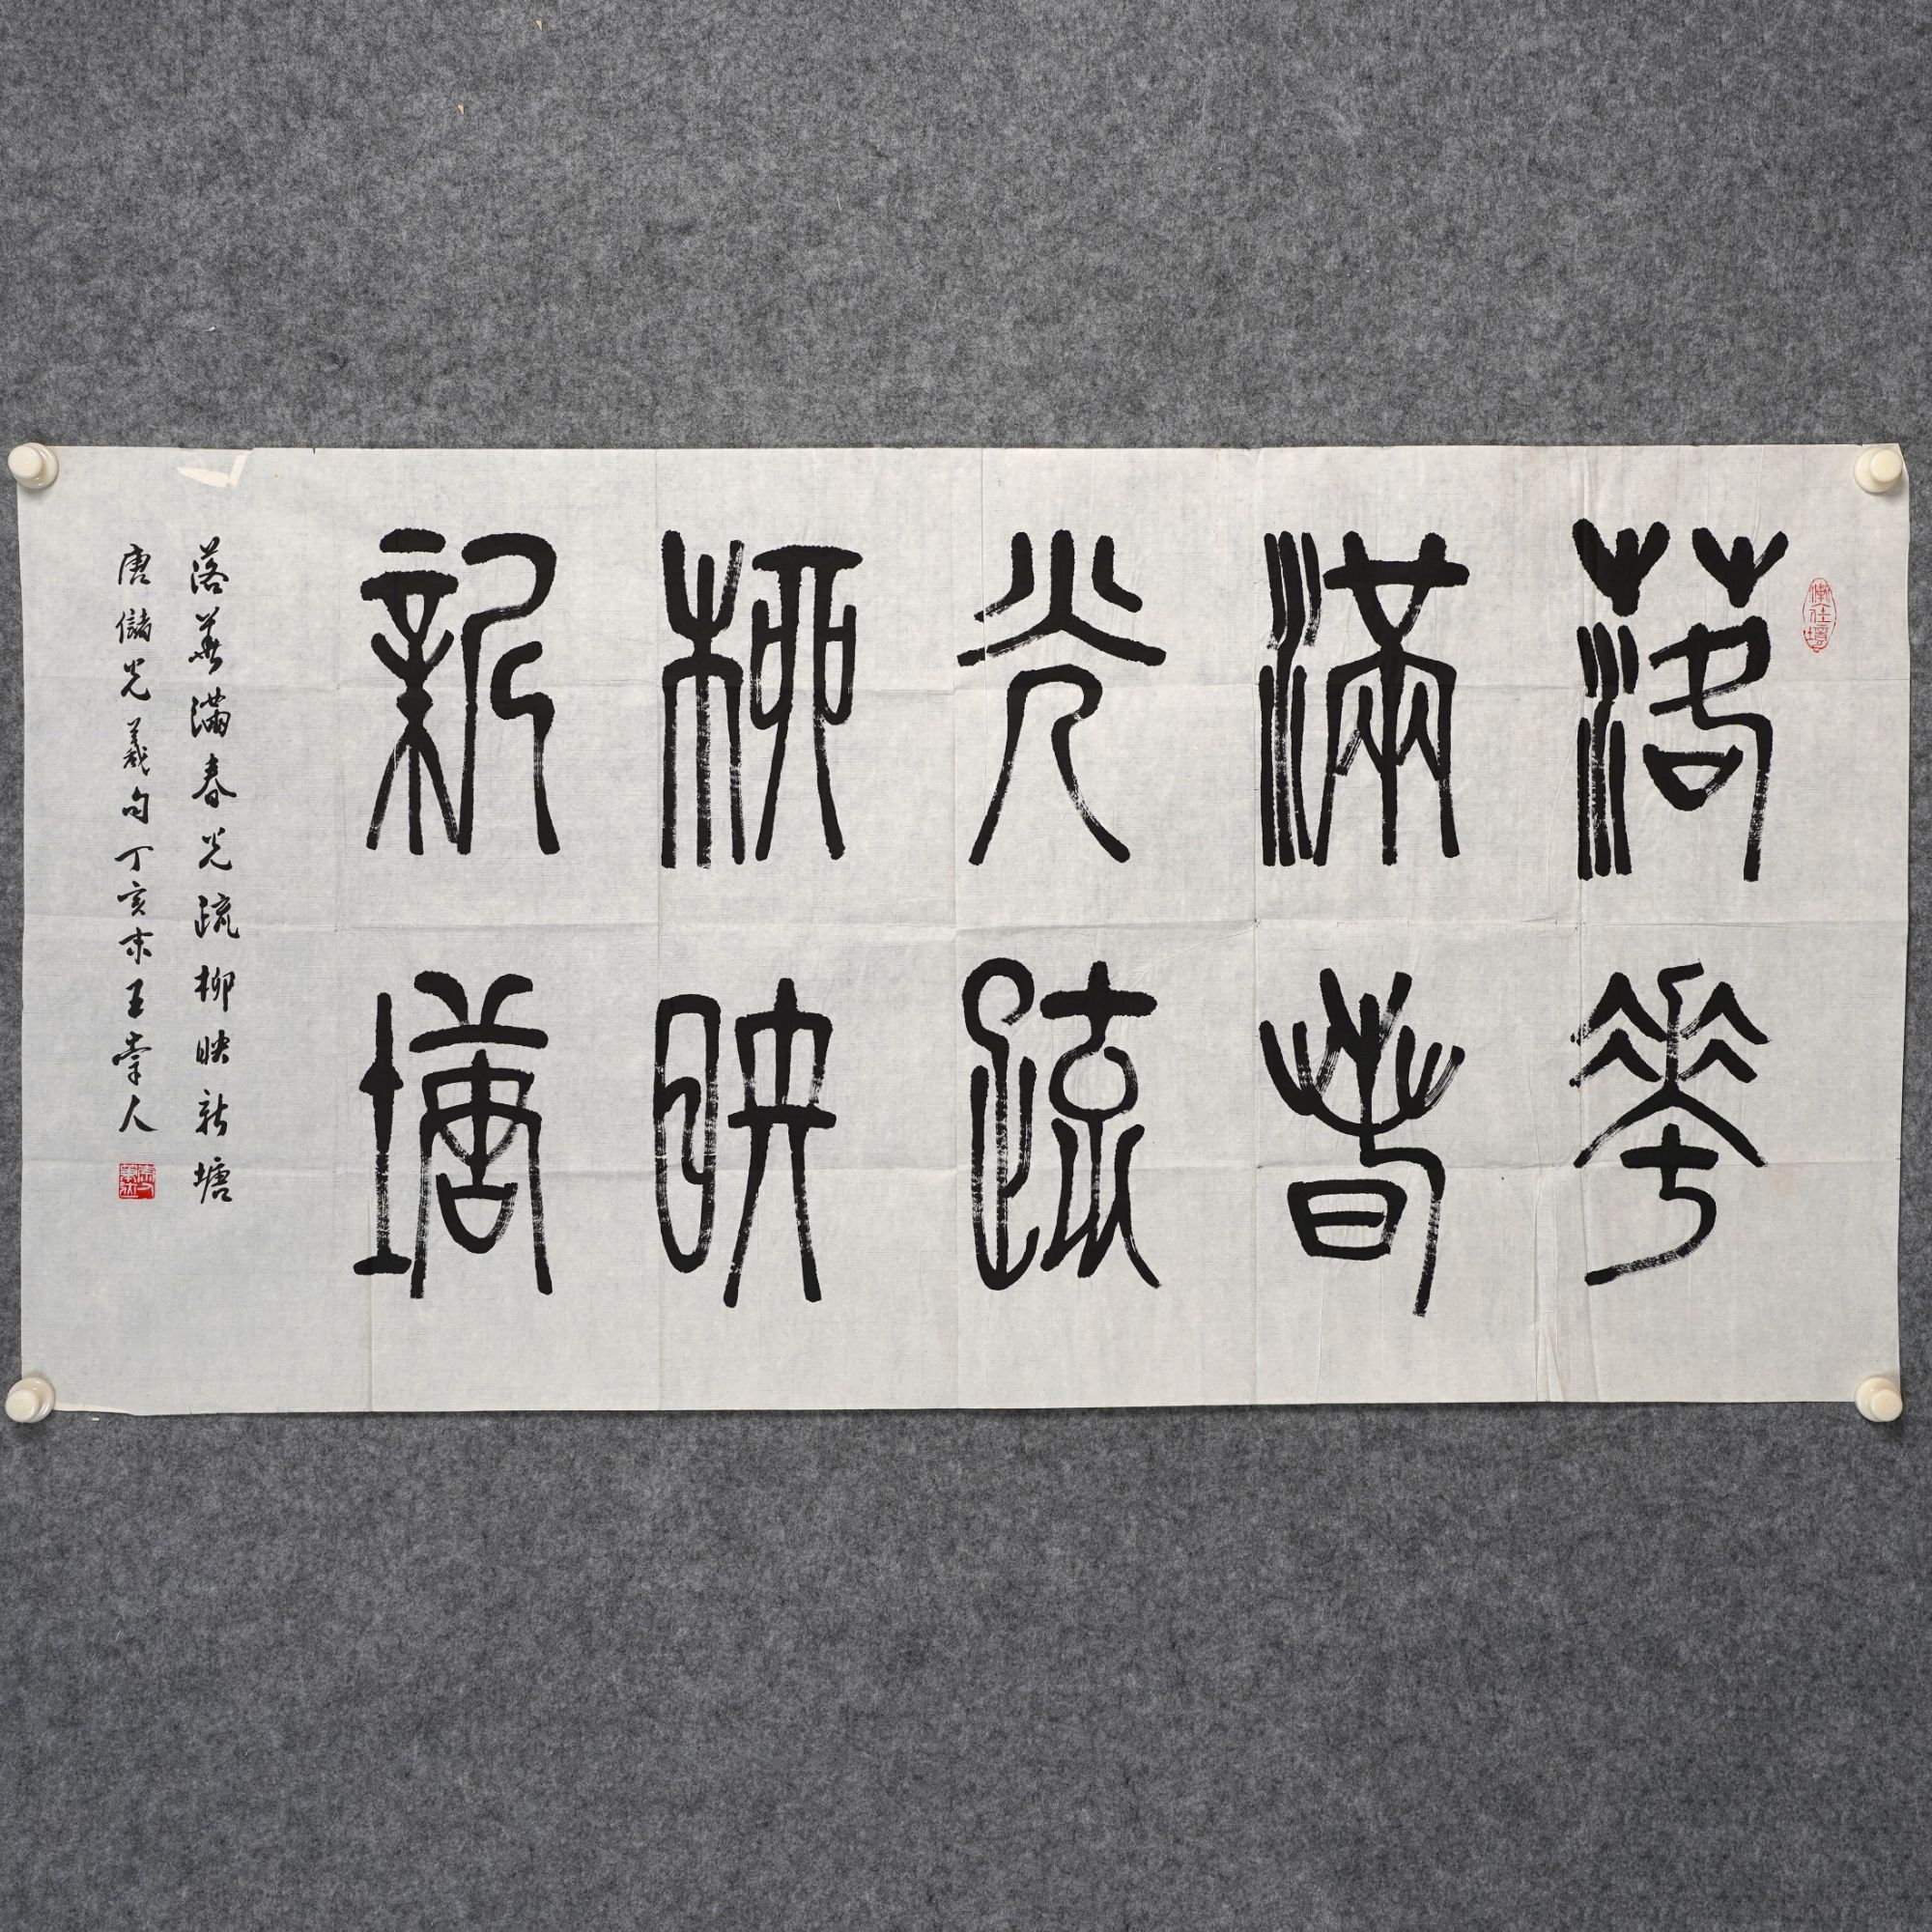 落華
滿春
光疏
柳映
新塘
落華滿春光疏柳映新塘
唐儲光羲句丁亥末王崇人